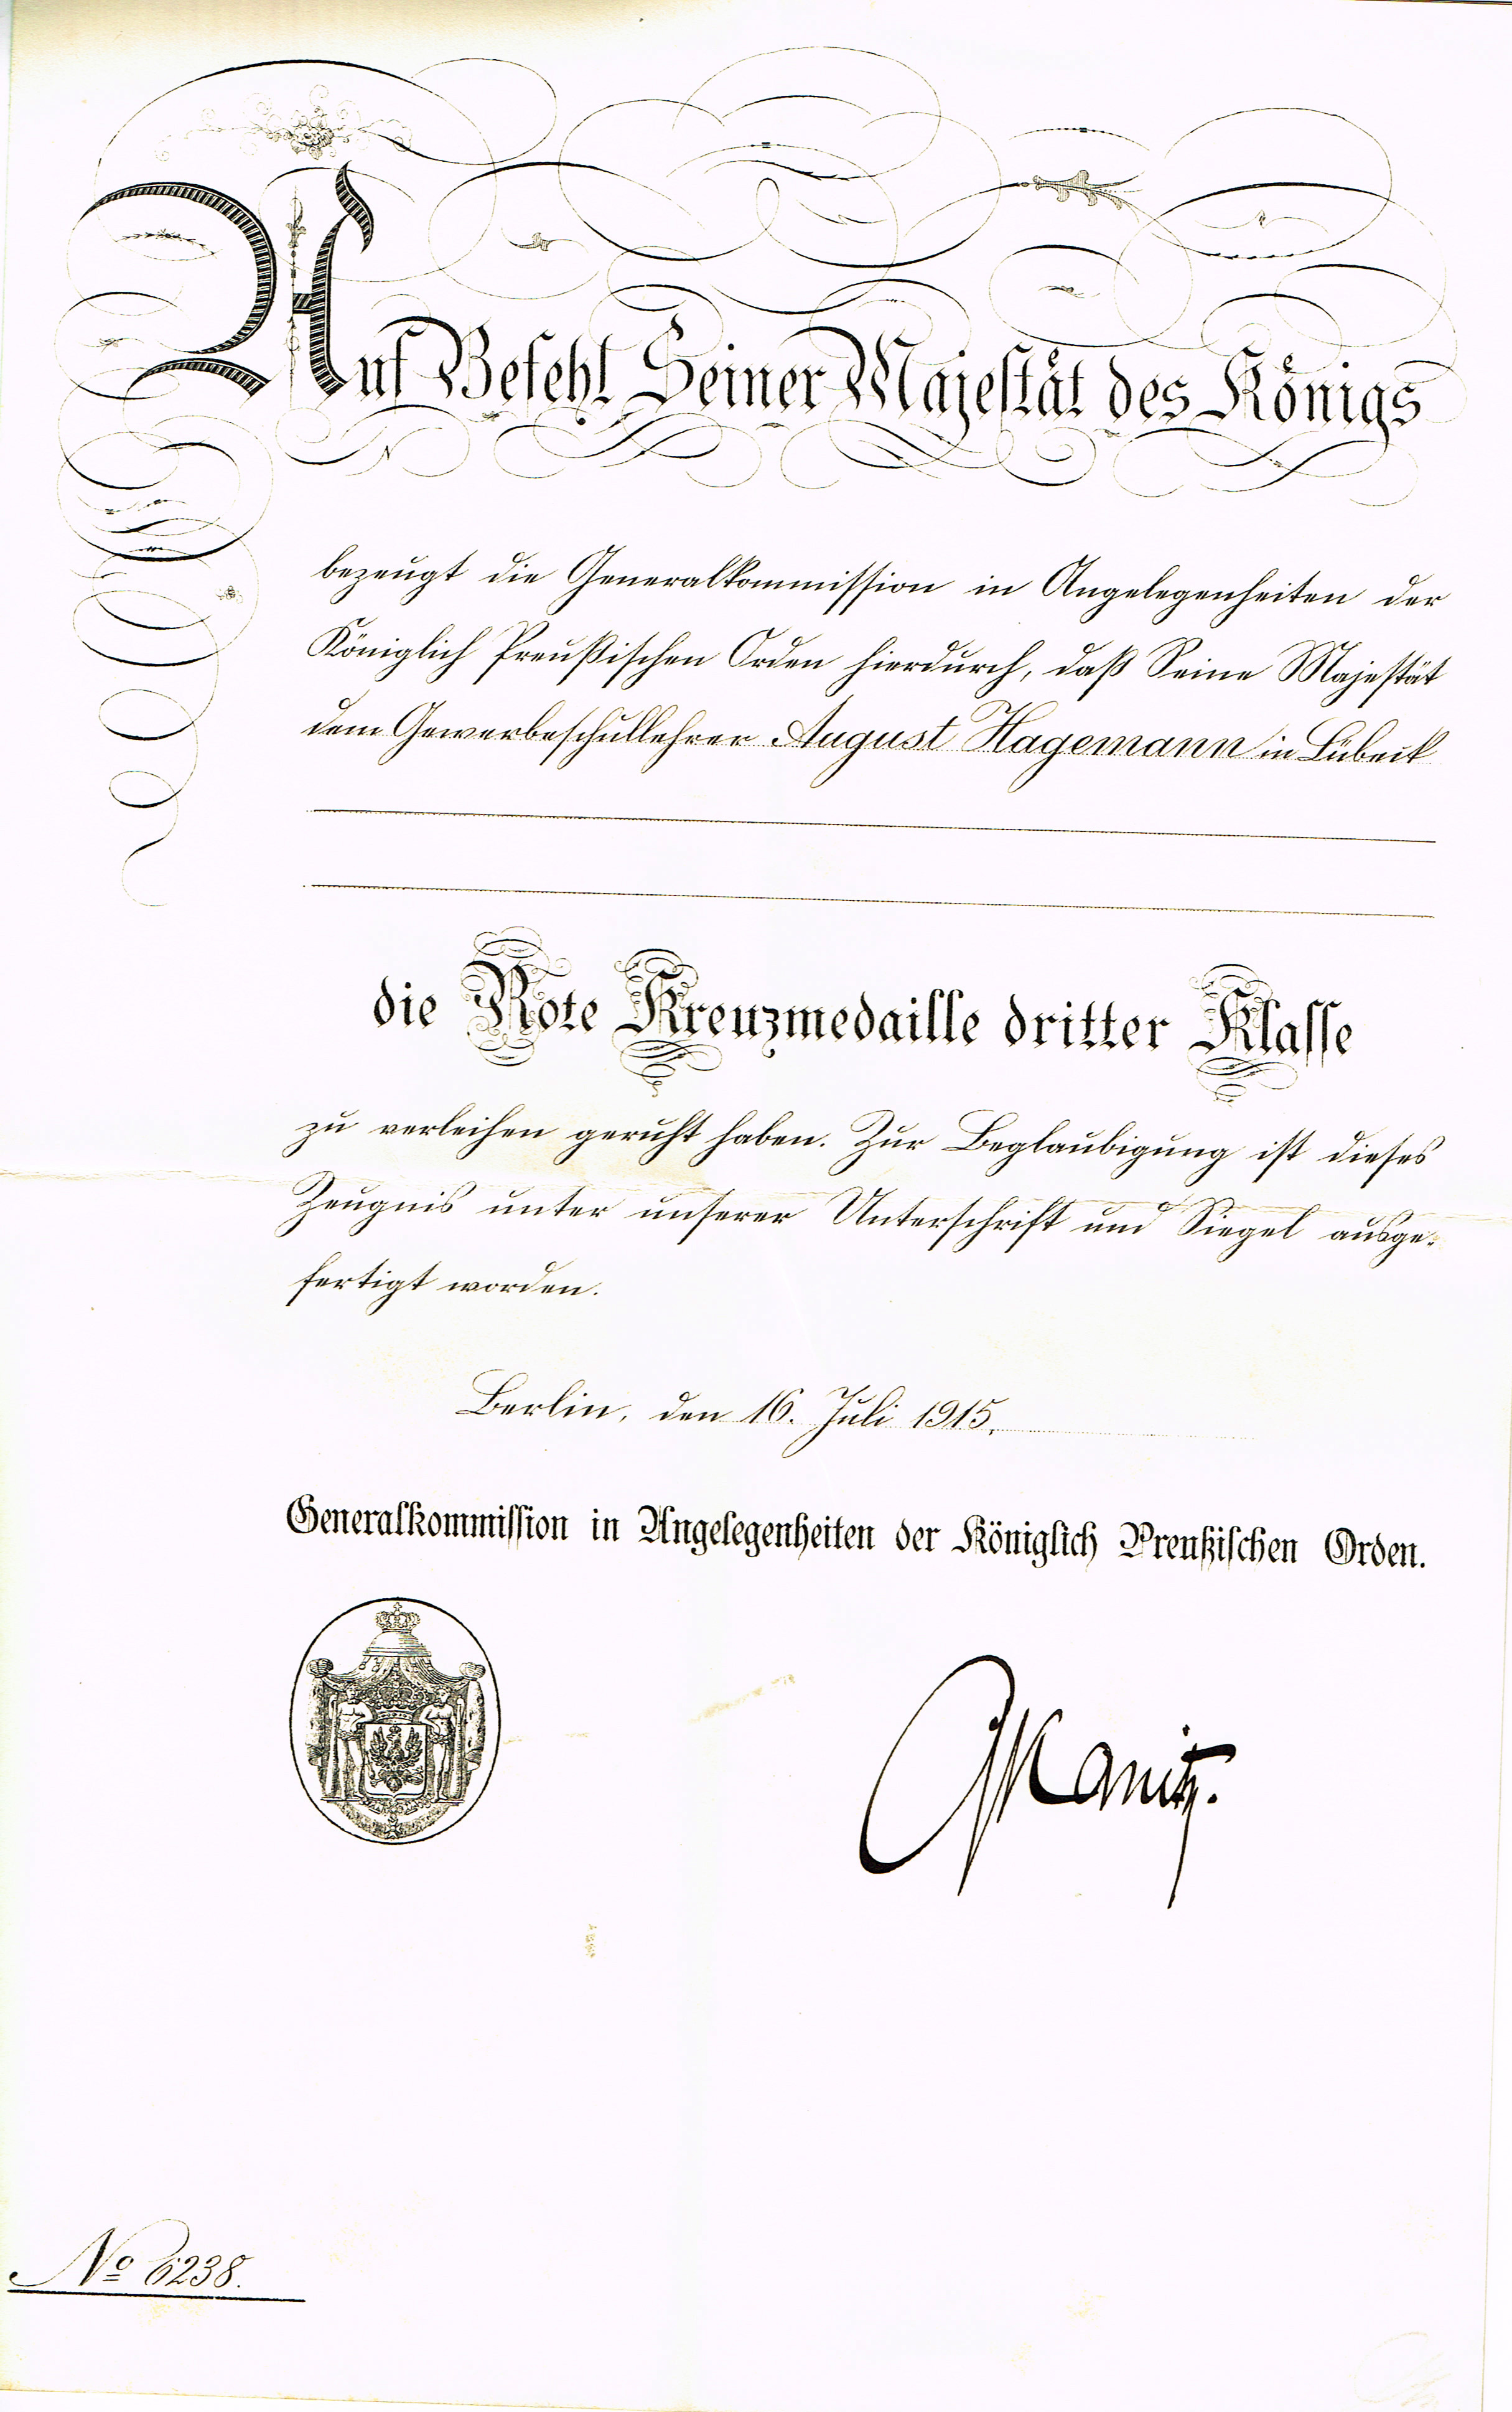 Auf Befehl Seiner Majestät des Königs
bezeugt die Generalkommission in Angelegenheiten der
Königlich Preußischen Orden hierdurch, daß Seine Majestät
dem Gewerbeschullehrer August Hagemann in Lübeck
die Rote Kreuzmedaille dritter Klasse
zu verleihen geruht haben. Zur Beglaubigung ist dieses
Zeugnis unter unserer Unterschrift und Siegel ausge-
fertigt worden.
Berlin, den 16. Juli 1915.
Generalkommission in Angelegenheiten der Königlich Preußischen Orden.
Kanitz.
No 6238.